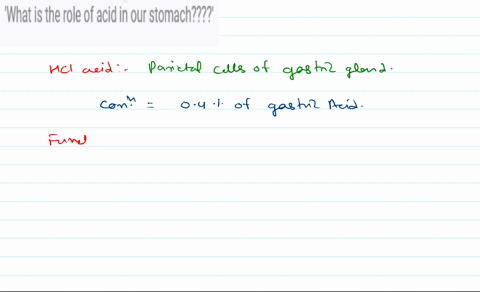 'What is the role of acid in our stomach????'
HCl acid:- Parietal cells of gastric gland.
Conⁿ. = 0.4 % of gastric Acid.
Funct